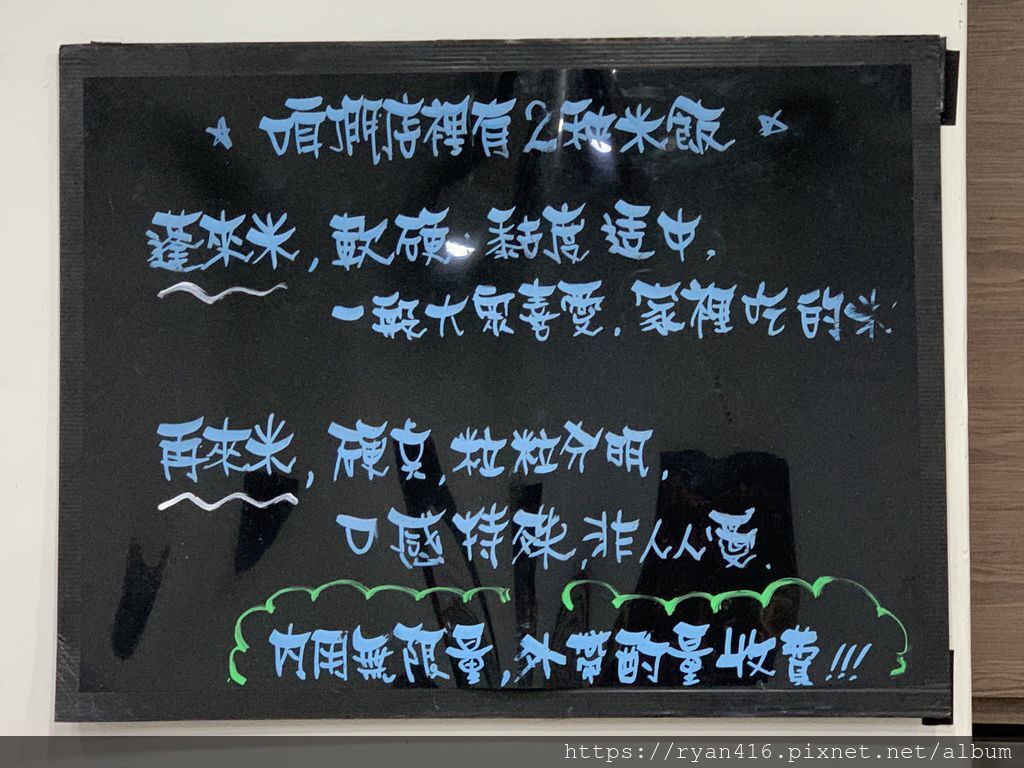 ☆ 咱們店裡有2種米飯 ☆
蓬來米,軟硬.黏度適中.
一般大眾喜愛.家裡吃的米
再來米,硬Q,粒粒分明.
口感特殊,非人人愛.
內用無限量,外帶酌量收費!!!
https://ryan416.pixnet.net/album